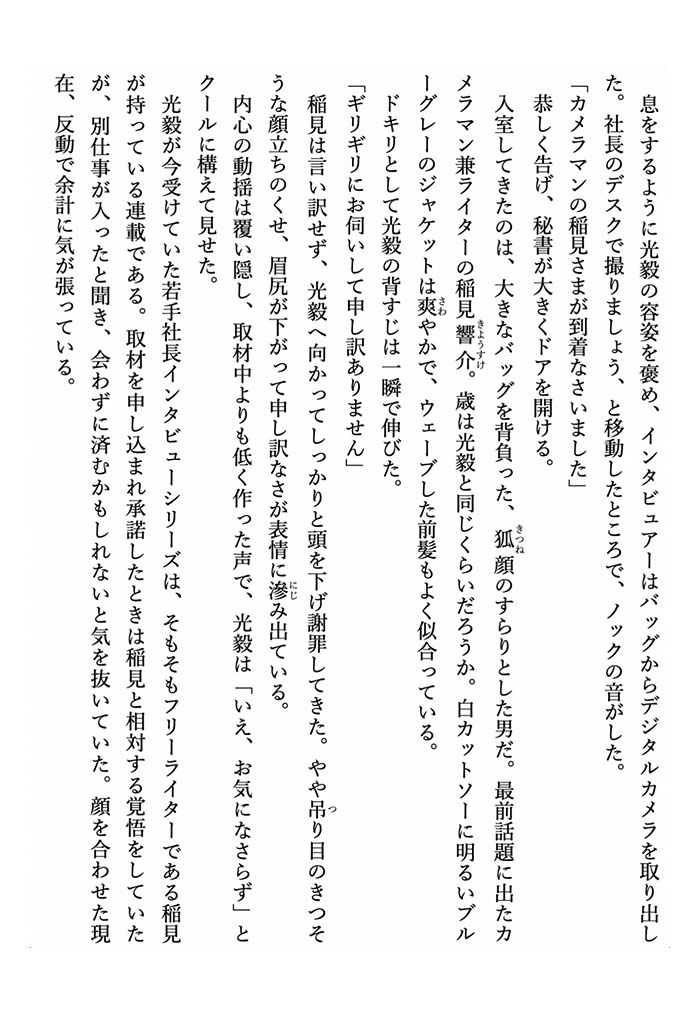 息をするように光毅の容姿を褒め、インタビュアーはバッグからデジタルカメラを取り出し
た。社長のデスクで撮りましょう、と移動したところで、ノックの音がした。
「カメラマンの稲見さまが到着なさいました」
恭しく告げ、秘書が大きくドアを開ける。
入室してきたのは、大きなバッグを背負った、狐顔のすらりとした男だ。最前話題に出たカ
メラマン兼ライターの稲見響介。歳は光毅と同じくらいだろうか。白カットソーに明るいブル
ーグレーのジャケットは爽やかで、ウェーブした前髪もよく似合っている。
ドキリとして光毅の背すじは一瞬で伸びた。
「ギリギリにお伺いして申し訳ありません」
稲見は言い訳せず、光毅へ向かってしっかりと頭を下げ謝罪してきた。やや吊り目のきつそ
うな顔立ちのくせ、眉尻が下がって申し訳なさが表情に滲み出ている。
内心の動揺は覆い隠し、取材中よりも低く作った声で、光毅は「いえ、お気になさらず」と
クールに構えて見せた。
光毅が今受けていた若手社長インタビューシリーズは、そもそもフリーライターである稲見
が持っている連載である。取材を申し込まれ承諾したときは稲見と相対する覚悟をしていた
が、別仕事が入ったと聞き、会わずに済むかもしれないと気を抜いていた。顔を合わせた現
在、反動で余計に気が張っている。